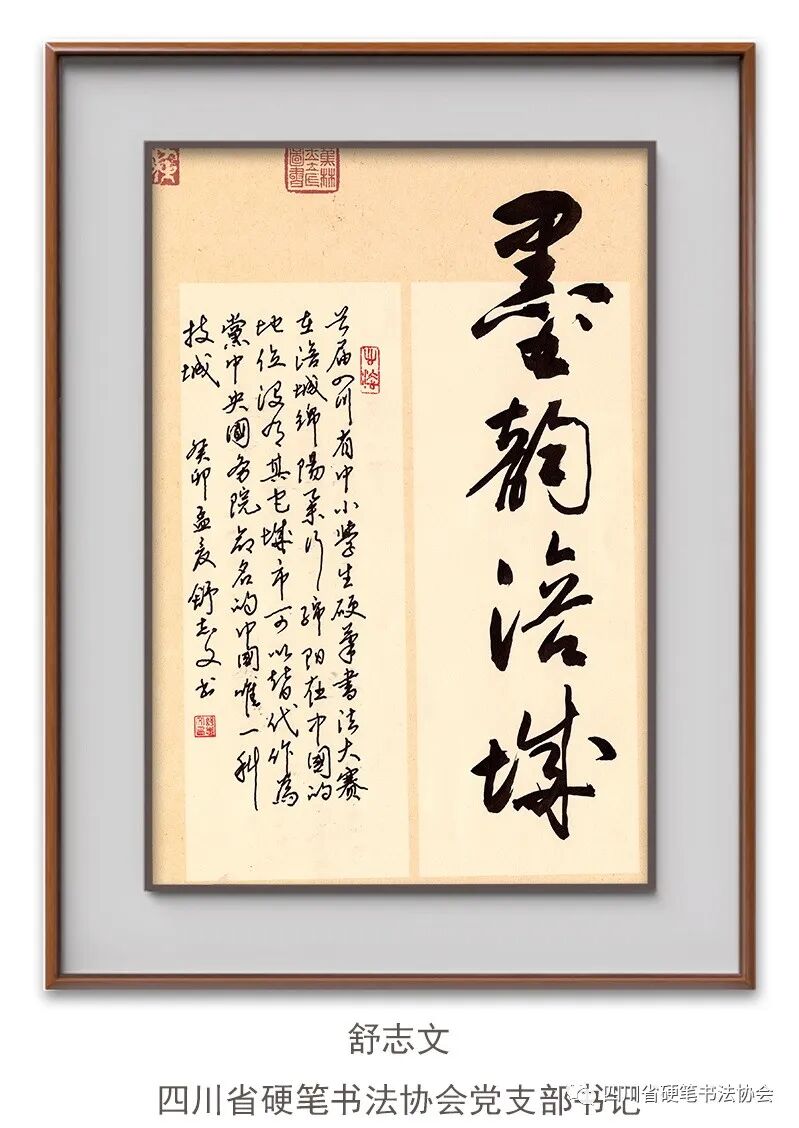 墨韵涪城
首届四川省中小学生硬筆書法大赛
在涪城綿陽举行绵阳在中國的
地位没有其它城市可以替代作為
黨中央國务院命名的中國唯一科
技城
癸卯孟夏舒志文书
舒志文
四川省硬笔书法协会党支部书记
四川省硬笔书法协会